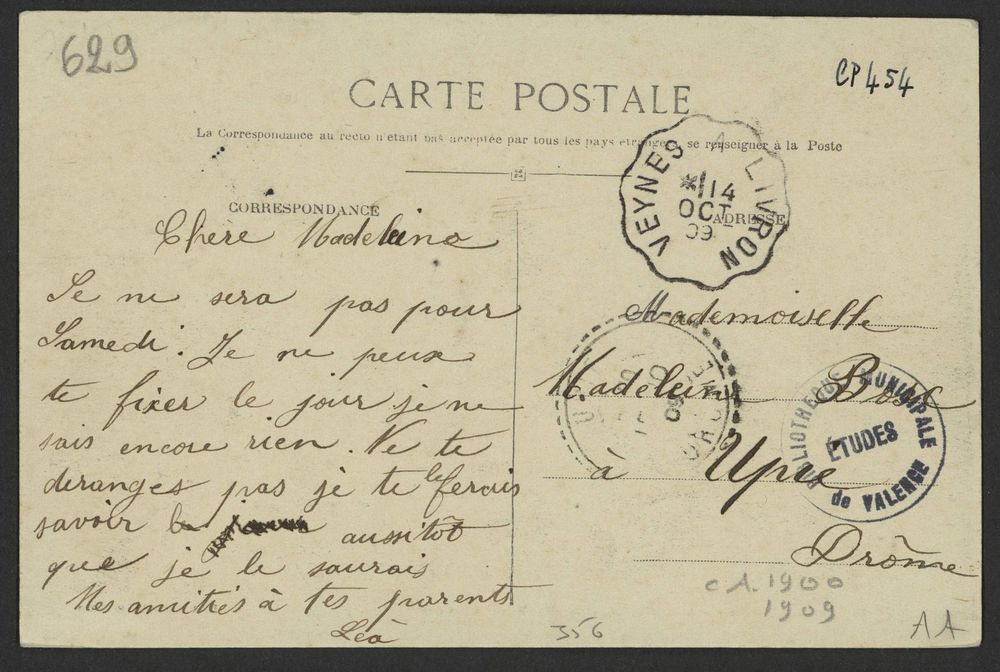 629
CP 454
CARTE POSTALE
La Correspondance au recto n'étant pas acceptée par tous les pays étrangers, se renseigner à la Poste
CORRESPONDANCE
ADRESSE
VEYNES A LIVRON
14
OCT
09
Chère Madeleine
Se ne sera pas pour
Samedi. Je ne peux
te fixer le jour je ne
sais encore rien. Ne te
déranges pas je te le ferais
savoir le aussitôt
que je le saurais
Mes amitiés à tes parents
Léa
Mademoiselle
Madeleine
à Upie
Drôme
BIBLIOTHEQUE MUNICIPALE
ÉTUDES
de VALENCE
CA.1900
1909
356
AA